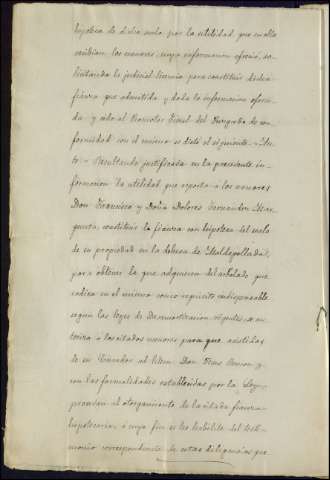 hipoteca de dicho suelo por la utilidad que en ello
recibian los menores, cuya informacion ofreció, so-
licitando la judicial licencia para constituir dicha
fianza que admitida y dada la informacion ofreci-
da y oido al Promotor Fiscal del Juzgado de con-
formidad con el mismo se dictó el siguiente = Au-
to = Resultando justificada en la precedente in-
formacion la utilidad que reporta á los menores
Don Francisco y Doña Dolores Fernandez
constituir la fianza con hipoteca del suelo
de su propiedad en la dehesa de
para obtener la que adquieran del arbolado que
radica en el mismo como requisito indispensable
segun las leyes de Desamortizacion vigentes, se au-
toriza á los citados menores para que asistidos
de su Curador ad litem Don
con las formalidades establecidas por la Ley,
procedan al otorgamiento de la citada fianza
hipotecaria á cuyo fin se les facilite del testi-
monio correspondiente de estas diligencias que